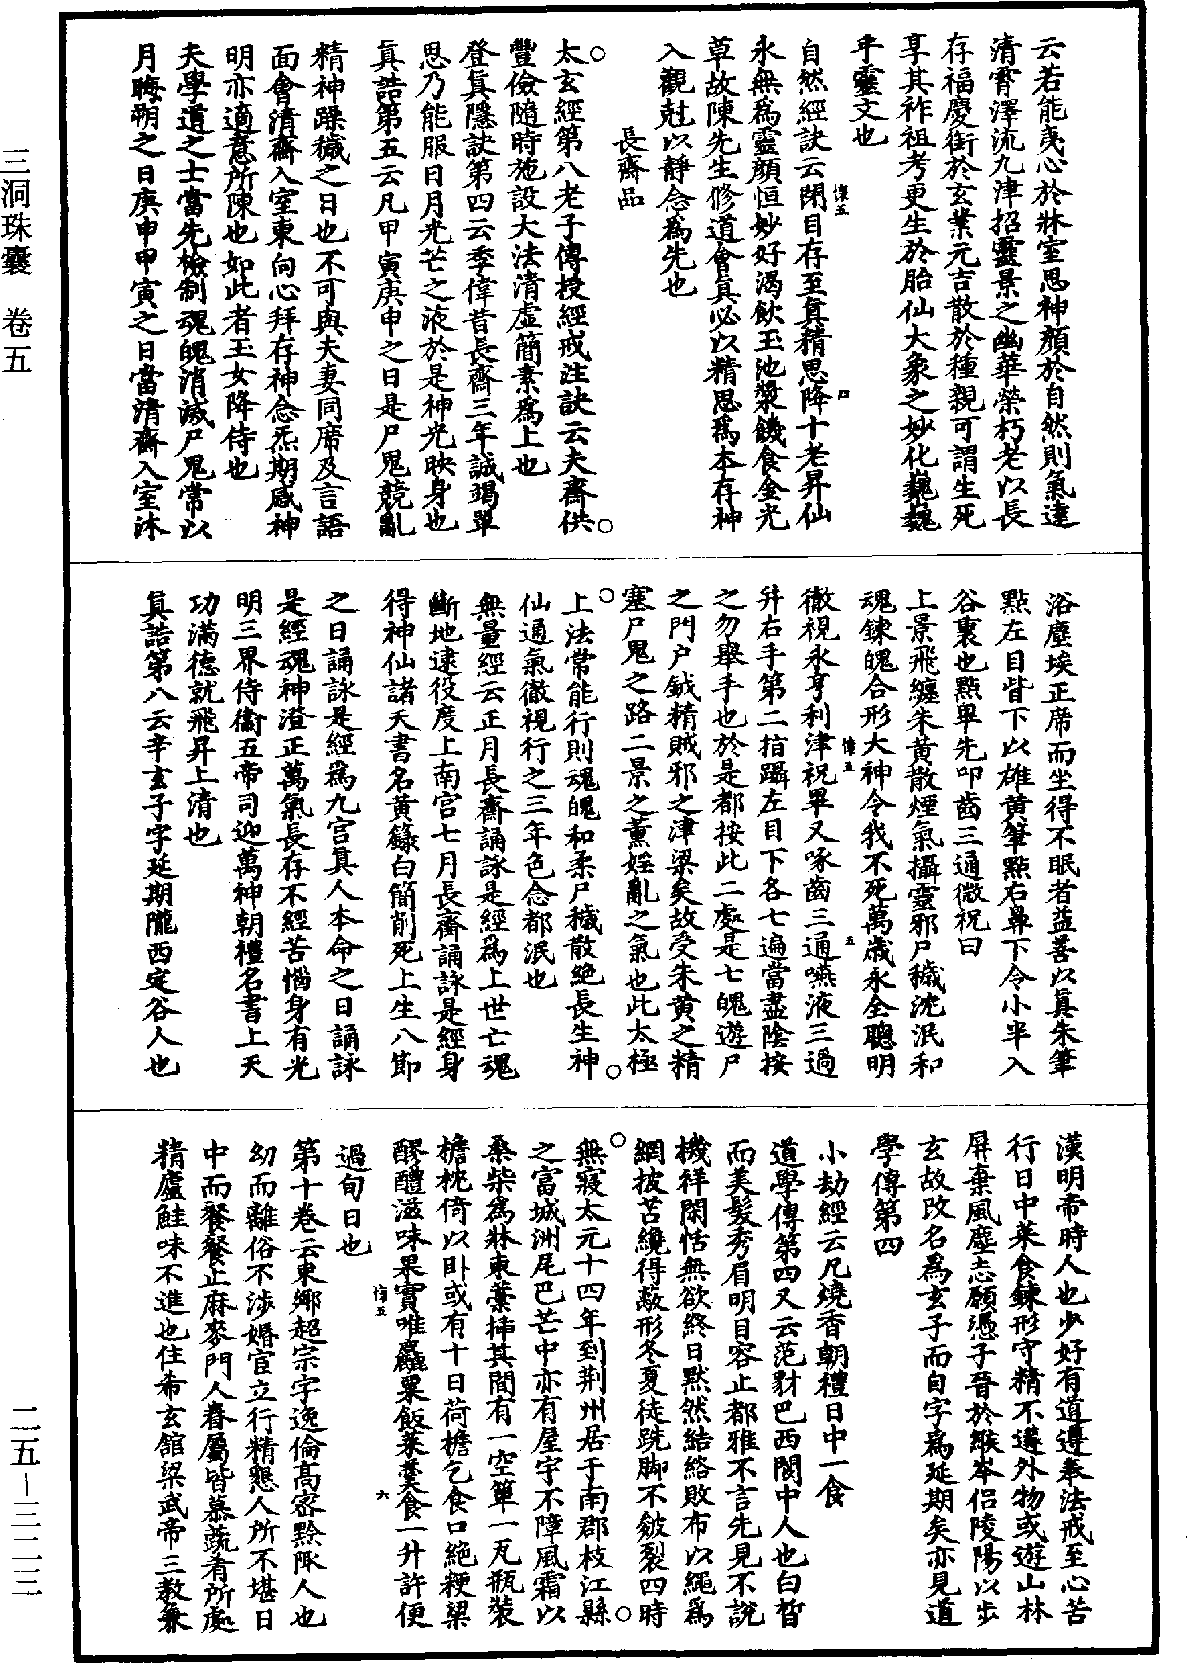 云若能夷心於牀室思神顏於自然則氣達
清霄澤流九津招靈景之幽華榮朽老以長
存福慶銜於玄業元吉散於種親可謂生死
享其祚祖考更生於胎仙大象之妙化巍巍
乎靈文也
自然經訣云閉目存至真精思降十老昇仙
永無為靈顏恒妙好渴飲玉池漿饑食金光
草故陳先生修道會真必以精思為本存神
入觀尅以靜念為先也
長齋品
太玄經第八老子傳授經戒注訣云夫齋供
豐儉隨時施設大法清虛簡素為上也
登真隱訣第四云季偉昔長齋三年誠竭單
思乃能服日月光芒之液於是神光映身也
真誥第五云凡甲寅庚申之日是尸鬼競亂
精神躁穢之日也不可與夫妻同席及言語
面會清齋入室東向心拜存神念炁期感神
明亦適意所陳也如此者玉女降侍也
夫學道之士當先檢制魂魄消滅尸鬼常以
月晦朔之日庚申甲寅之日當清齋入室沐
浴塵埃正席而坐得不眠者益善以真朱筆
點左目眥下以雄黃筆點右鼻下令小半入
谷裏也點畢先叩齒三通微祝曰
上景飛纏朱黃散煙氣攝靈邪尸穢沈泯和
魂鍊魄合形大神令我不死萬歲永全聰明
徹視永亨利津祝畢又啄齒三通嚥液三過
并右手第二指躡左目下各七遍當盡陰按
之勿舉手也於是都按此二處是七魄遊尸
之門戶鉞精賊邪之津梁矣故受朱黃之精
塞尸鬼之路二景之薰婬亂之氣也此太極
上法常能行則魂魄和柔尸穢散絕長生神
仙通氣徹視行之三年色念都泯也
無量經云正月長齋誦詠是經為上世亡魂
斷地逮役度上南宮七月長齋誦詠是經身
得神仙諸天書名黃籙白簡削死上生八節
之日誦詠是經為九宮真人本命之日誦詠
是經魂神澄正萬氣長存不經苦惱身有光
明三界侍衛五帝司迎萬神朝禮名書上天
功滿德就飛昇上清也
真誥第八云辛玄子字延期隴西定谷人也
漢明帝時人也少好有道遵奉法戒至心苦
行日中菜食鍊形守精不遘外物或遊山林
屏棄風塵志願憑子晉於緱岑侶陵陽以步
玄故改名為玄子而自字為延期矣亦見道
學傳第四
小劫經云凡燒香朝禮日中一食
道學傳第四又云范豺巴西閬中人也白皙
而美髮秀眉明目容止都雅不言先見不說
機祥閑恬無欲終日默然結絡敗布以繩為
網披苫纔得蔽形冬夏徒跣脚不皴裂四時
無寢太元十四年到荊州居于南郡枝江縣
之富城洲尾巴芒中亦有屋宇不障風霜以
桑柴為牀東藁揷其間有一空簞一瓦瓶裝
檐枕倚以臥或有十日荷檐乞食口絕粳粱
醪醴滋味果實唯麤粟飯菜羹食一升許便
過旬日也
第十卷云東鄉超宗字逸倫高密黔陬人也
幼而離俗不涉婚宦立行精懇人所不堪日
中而餐餐止麻麥門人眷屬皆慕蔬肴所處
精廬鮭味不進也住希玄館梁武帝三教兼
三洞珠囊 卷五
二五－三二三